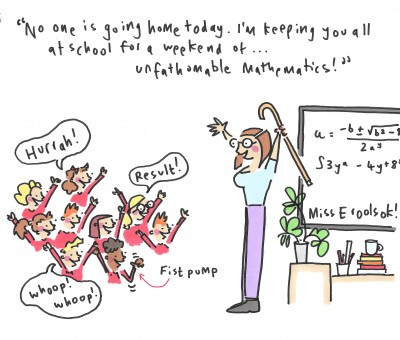 "No one is going home today. I'm keeping you all
at school for a weekend of...
unfathomable Mathematics!"
Hurrah!
Result!
whoop!
whoop!
Fist pump
Miss Eroolsok!